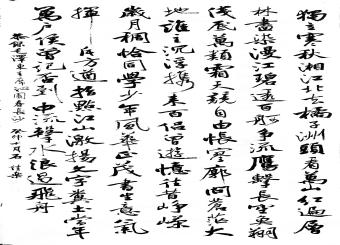 獨立寒秋湘江北去橘子洲頭看萬山紅遍層
林盡染漫江碧透百舸爭流鷹擊長空魚翔
淺底萬類霜天競自由悵寥廓問蒼茫大
地誰主沉浮攜來百侶曾遊憶往昔崢嶸
歲月稠恰同學少年風華正茂書生意氣
揮斥方遒指點江山激揚文字糞土當年
萬戶侯曾記否到中流擊水浪遏飛舟
恭錄毛澤東主席沁園春長沙